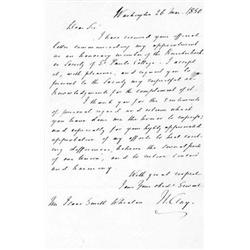 Washington 26 Mar. 1850
Dear Sir
I have received your official
letter communicating my appointment
as an honorary member of the
Society of St. Pauls College. I accept
it, with pleasure, and request you to
present to the Society my respectful ac-
knowledgments for the compliment of it.
I thank you for the sentiments
of personal regard and esteem which
you have done me the honor to express;
and especially for your highly appreciated
approbation of my efforts to heal exist-
ing differences, between the several parts
of our Union, and to restore concord
and harmony.
With great respect
I am Your obed. Servant
H. Clay
Mr. Isaac Smith